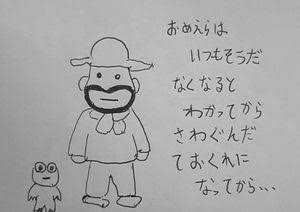 おめえらは
いつもそうだ
なくなると
わかってから
さわぐんだ
ておくれに
なってから…